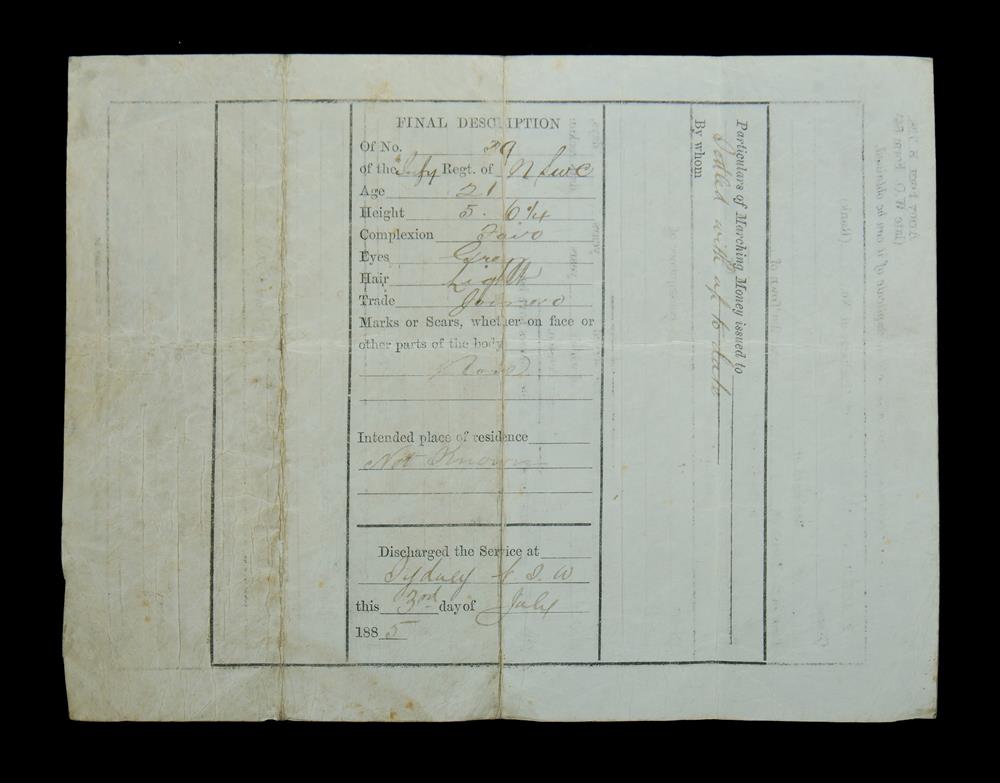 FINAL DESCRIPTION
Of No. 39
of the Infy Regt. of N S W C
Age 21
Height 5. 6 1/4
Complexion Fair
Eyes Grey
Hair Light
Trade
Marks or Scars, whether on face or
other parts of the body
None
Intended place of residence
Not Known
Discharged the Service at
Sydney N. S. W
this 3rd day of July
188 5
Particulars of Marching Money issued to
Settled with up to date
By whom